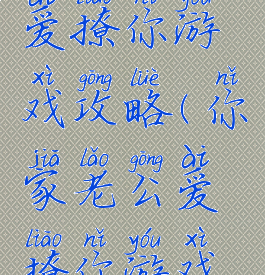 ài liáo nǐ yóu
爱撩你游
xì gōng lüè nǐ
戏攻略(你
jiā lǎo gōng ài
家老公爱
liáo nǐ yóu xì
撩你游戏